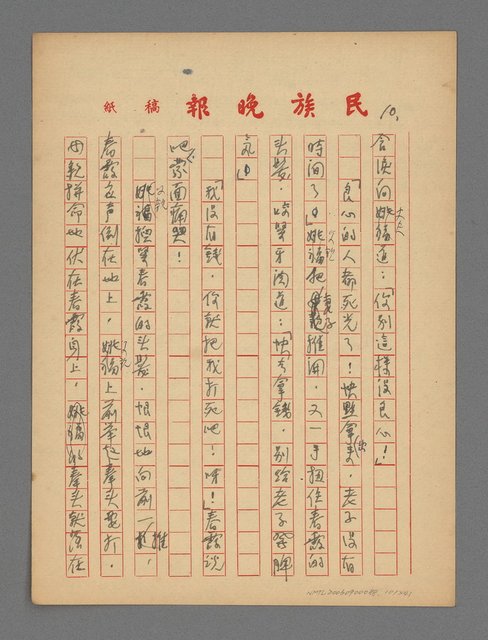 民族晚報 稿紙
10.
含淚向姚福道：「你別這樣沒良心！」
「良心的人都死光了！快點拿出來，老子沒有
時間了。」姚福把春霞推開，又一手扭住春霞的
頭髮，咬緊牙關道：「快去拿錢，別給老子發脾
氣。」
「我沒有錢，你就把我打死吧！呀！」春霞說
吧，蒙面痛哭！
姚福揪緊春霞的頭髮，恨恨地向前一推，
春霞應聲倒在地上，姚福上前舉起拳頭要打，
母親拼命地伏在春霞身上，姚福的拳頭就落在